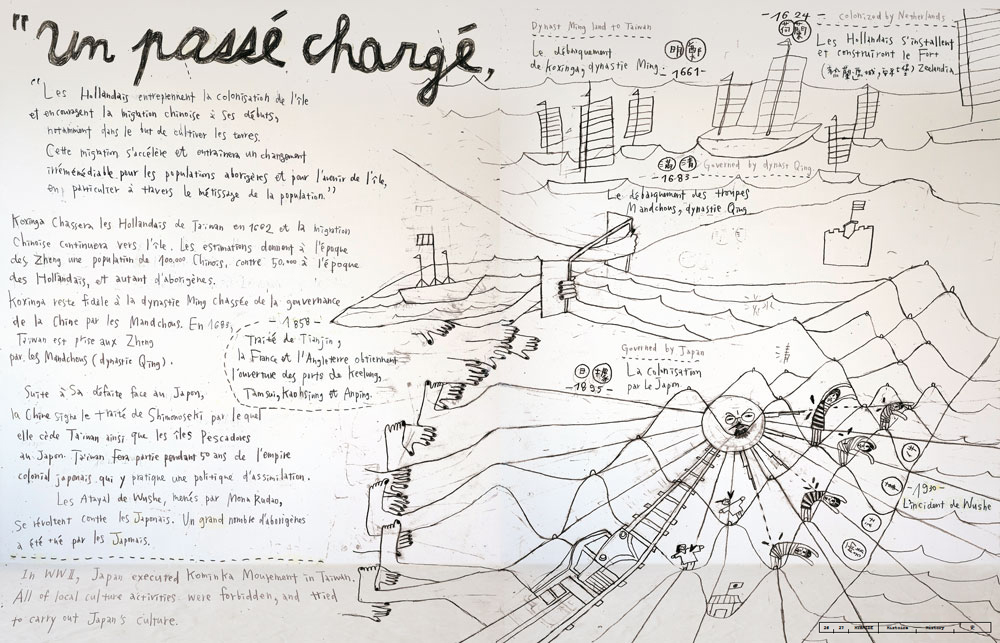 "un passé chargé,
"Les Hollandais entreprennent la colonisation de l'île
et encouragent la migration chinoise à ses débuts,
notamment dans le but de cultiver les terres.
Cette migration s'accélère et entraînera un changement
irrémédiable pour les populations aborigènes et pour l'avenir de l'île,
en particulier à travers le métissage de la population."
Koxinga Chassera les Hollandais de Taiwan en 1662 et la migration
Chinoise continuera vers l'île. Les estimations donnent à l'époque
des Zheng une population de 100.000 Chinois, contre 50.000 à l'époque
des Hollandais, et autant d'aborigènes.
Koxinga reste fidèle à la dynastie Ming chassée de la gouvernance
de la Chine par les Mandchous. En 1683,
Taiwan est prise aux Zheng
par les Mandchous (dynastie Qing).
- 1858 -
Traité de Tianjin,
la France et l'Angleterre obtiennent
l'ouverture des ports de Keelung,
Tamsui, Kaohsiung et Anping.
Suite à Sa défaite face au Japon,
la Chine signe le traité de Shimonoseki par lequel
elle cède Taiwan ainsi que les îles Pescadores
au Japon. Taiwan fera partie pendant 50 ans de l'empire
colonial japonais qui y pratique une politique d'assimilation.
Les Atayal de Wushe, menés par Mona Rudao,
Se révoltent contre les Japonais. Un grand nombre d'aborigènes
a été tué par les Japonais.
In WWII, Japan executed Kominka Movement in Taiwan.
All of local culture activities were forbidden, and tried
to carry out Japan's culture.
Dynast Ming land to Taiwan
Le débarquement
de Koxinga, dynastie Ming.
明 鄭
- 1661 -
- 1624 -
荷 蘭
colonized by Netherlands
Les Hollandais s'installent
et construiront le Fort
Zeelandia.
滿 清
- 1683 -
Governed by dynast Qing
Le débarquement des troupes
Mandchous, dynastie Qing
Governed by Japan
日 據
- 1895 -
La colonisation
par Le Japon
- 1930 -
L'incident de Wushe
26 27 Histoire History